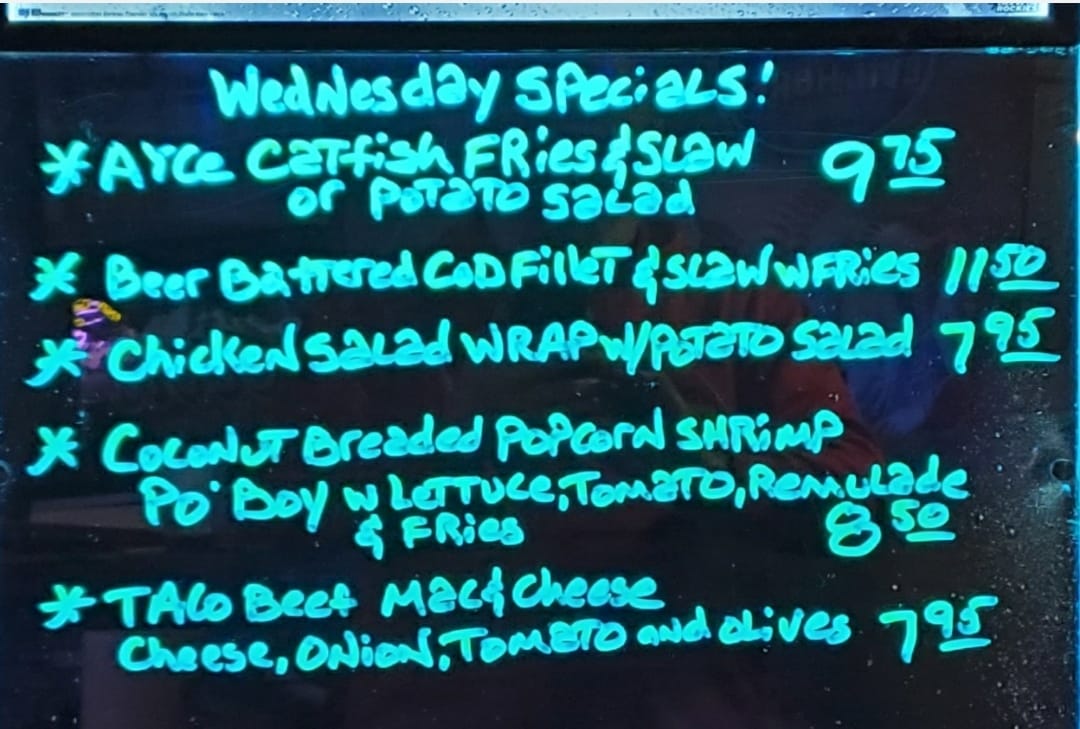 Wednesday Specials!
* AYCE Catfish Fries & Slaw 9.75
or Potato Salad
* Beer Battered Cod Fillet & Slaw w Fries 11.50
* Chicken Salad Wrap w/Potato Salad 7.95
* Coconut Breaded Popcorn Shrimp
Po' Boy w Lettuce, Tomato, Remulade
& Fries 8.50
* Taco Beef Mac & Cheese
Cheese, Onion, Tomato and Olives 7.95